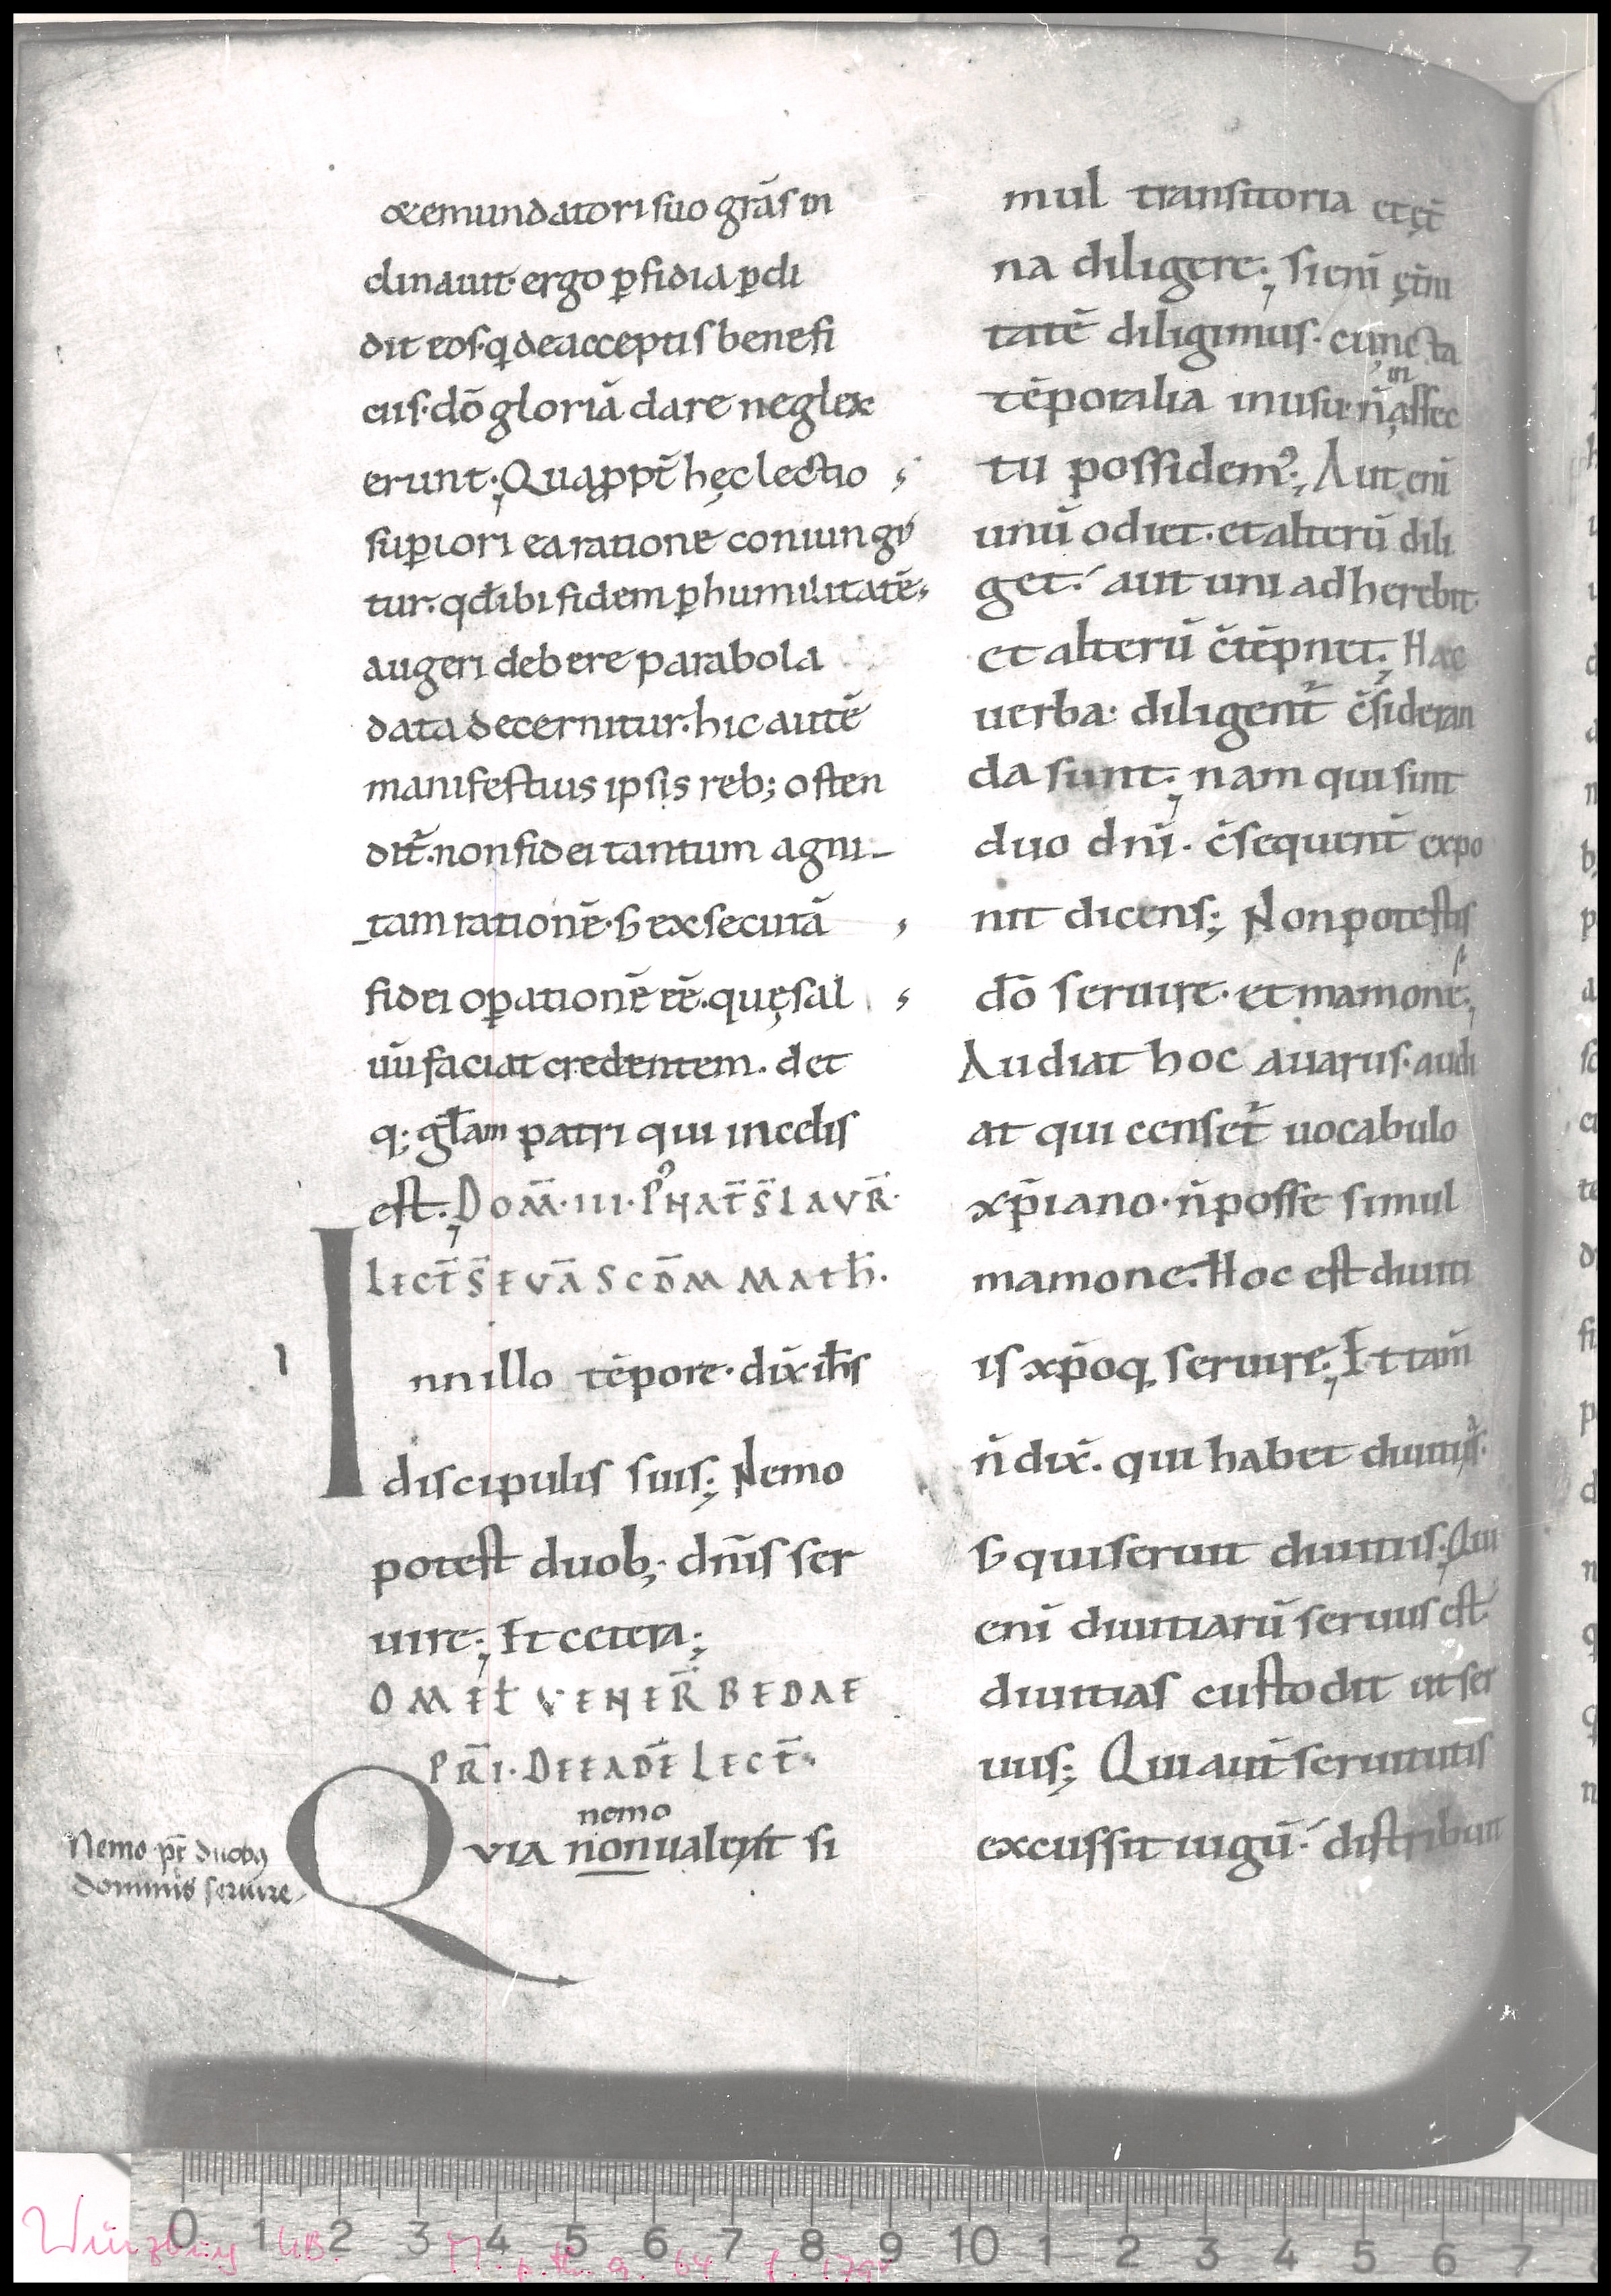 & emundatori suo grās in
clinauit· ergo ꝑfidia ꝑdi
dit eos· q̨ de acceptis benefi
ciis· dō gloriā dare neglex
erunt·; Quaꝓpt̄ hęc lectio
suꝑiori ea ratione coniungi
tur· qđ ibi fidem ꝑ humilitatē
augeri debere parabola
data decernitur· hic autē
manifestius ipsis reb; osten
dit̄· non fidei tantum agni
tam rationē· s̄ exsecutā
fidei oꝑationē eē· quę sal
uū faciat credentem· det
q; gl̄am patri qui in celis
est·; DOM̄· III· P' NAT̄ S̄ LAVR̄·
LECT̄ S̄ EVĀ SCD̄M MATH̄·
Inn illo tēpore· dix̄ ih̄s
discipulis suis·; Nemo
potest duob; dn̄is ser
uire·; Et cetera·;
OMEL̄ VENER̄ BEDAE
PR̄I· DE EADĒ LECT̄·
nemo
QVIA non ualent si
Nemo pt̄ duobꝰ
dominis seruire
mul transitoria et ęt̄
na diligere·; si eni ęt̄ni
tatē diligimus· cuncta
in
tēporalia in usu n̄ affec
tu possidemꝰ·; Aut eni
unū odiet· et alterū dili
get· aut uni adherebit
et alterū c̄tēpnet·; Haec
uerba· diligent̄ c̄sideran
da sunt·; nam qui sint
duo dn̄i· c̄sequent̄ expo
nit dicens·; Non potestis
dō seruire· et mamone·;
Audiat hoc auarus· audi
at qui censet̄ uocabulo
xp̄iano· n̄ posse simul
mamone· Hoc est diuiti
is xp̄oq; seruire·; Et tam̄
n̄ dix̄· qui habet diuitias·
s̄ qui seruit diuitiis·; Qui
eni diuitiarū seruus est
diuitias custodit ut ser
uus·; Qui aut̄ seruitutis
excussit iugū· distribuit
Würzburg UB. M. p. th. q. 64 f. 179v
0 1 2 3 4 5 6 7 8 9 10 1 2 3 4 5 6 7